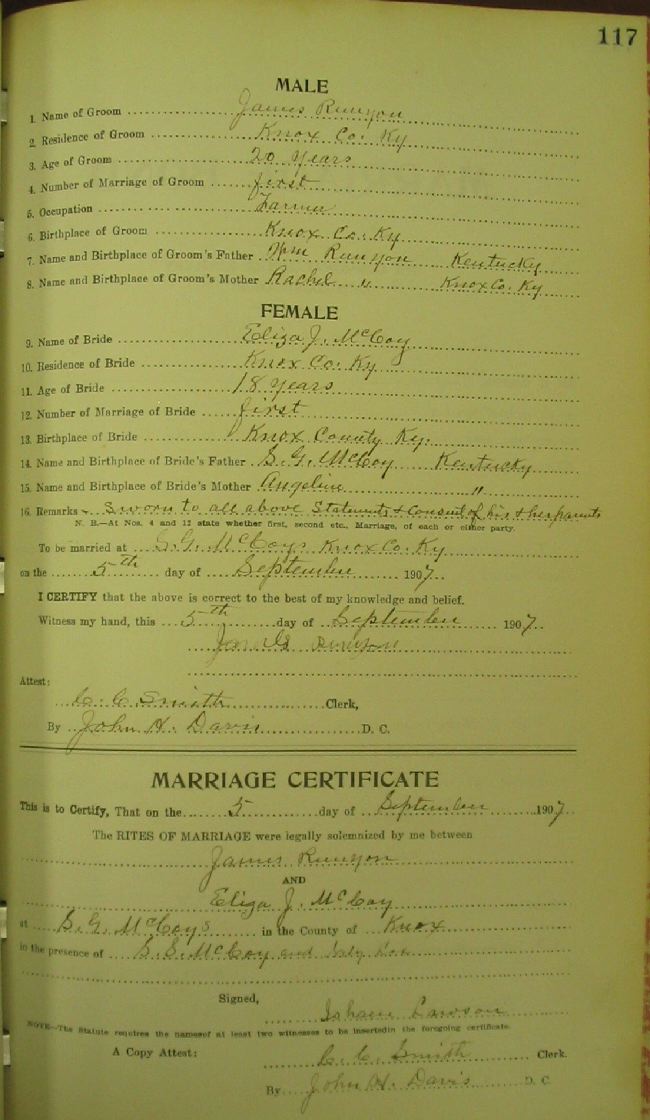 117
MALE
1. Name of Groom James Runyon
2. Residence of Groom Knox Co. Ky
3. Age of Groom 20 years
4. Number of Marriage of Groom first
5. Occupation Farmer
6. Birthplace of Groom Knox Co. Ky
7. Name and Birthplace of Groom's Father Wm Runyon Kentucky
8. Name and Birthplace of Groom's Mother Rachel " Knox Co. Ky
FEMALE
9. Name of Bride Eliza J. McCoy
10. Residence of Bride Knox Co. Ky
11. Age of Bride 18 years
12. Number of Marriage of Bride first
13. Birthplace of Bride Knox County Ky.
14. Name and Birthplace of Bride's Father S. G. McCoy Kentucky
15. Name and Birthplace of Bride's Mother Angeline "
16. Remarks Sworn to all above Statements & Consent of his & her parents
N. B.—At Nos. 4 and 12 state whether first, second etc., Marriage, of each or either party.
To be married at S. G. McCoys Knox Co. Ky
on the 5th day of September 1907
I CERTIFY that the above is correct to the best of my knowledge and belief.
Witness my hand, this 5th day of September 1907
Runyon
Attest:
C. C. Smith Clerk,
By John H. Davis D. C.
MARRIAGE CERTIFICATE
This is to Certify, That on the 5 day of September 1907
The RITES OF MARRIAGE were legally solemnized by me between
James Runyon
AND
Eliza J. McCoy
at S. G. McCoys in the County of Knox
in the presence of McCoy and
Signed,
Lawson
NOTE—The Statute requires the names of at least two witnesses to be inserted in the foregoing certificate.
A Copy Attest: C. C. Smith Clerk.
By John H. Davis D. C.